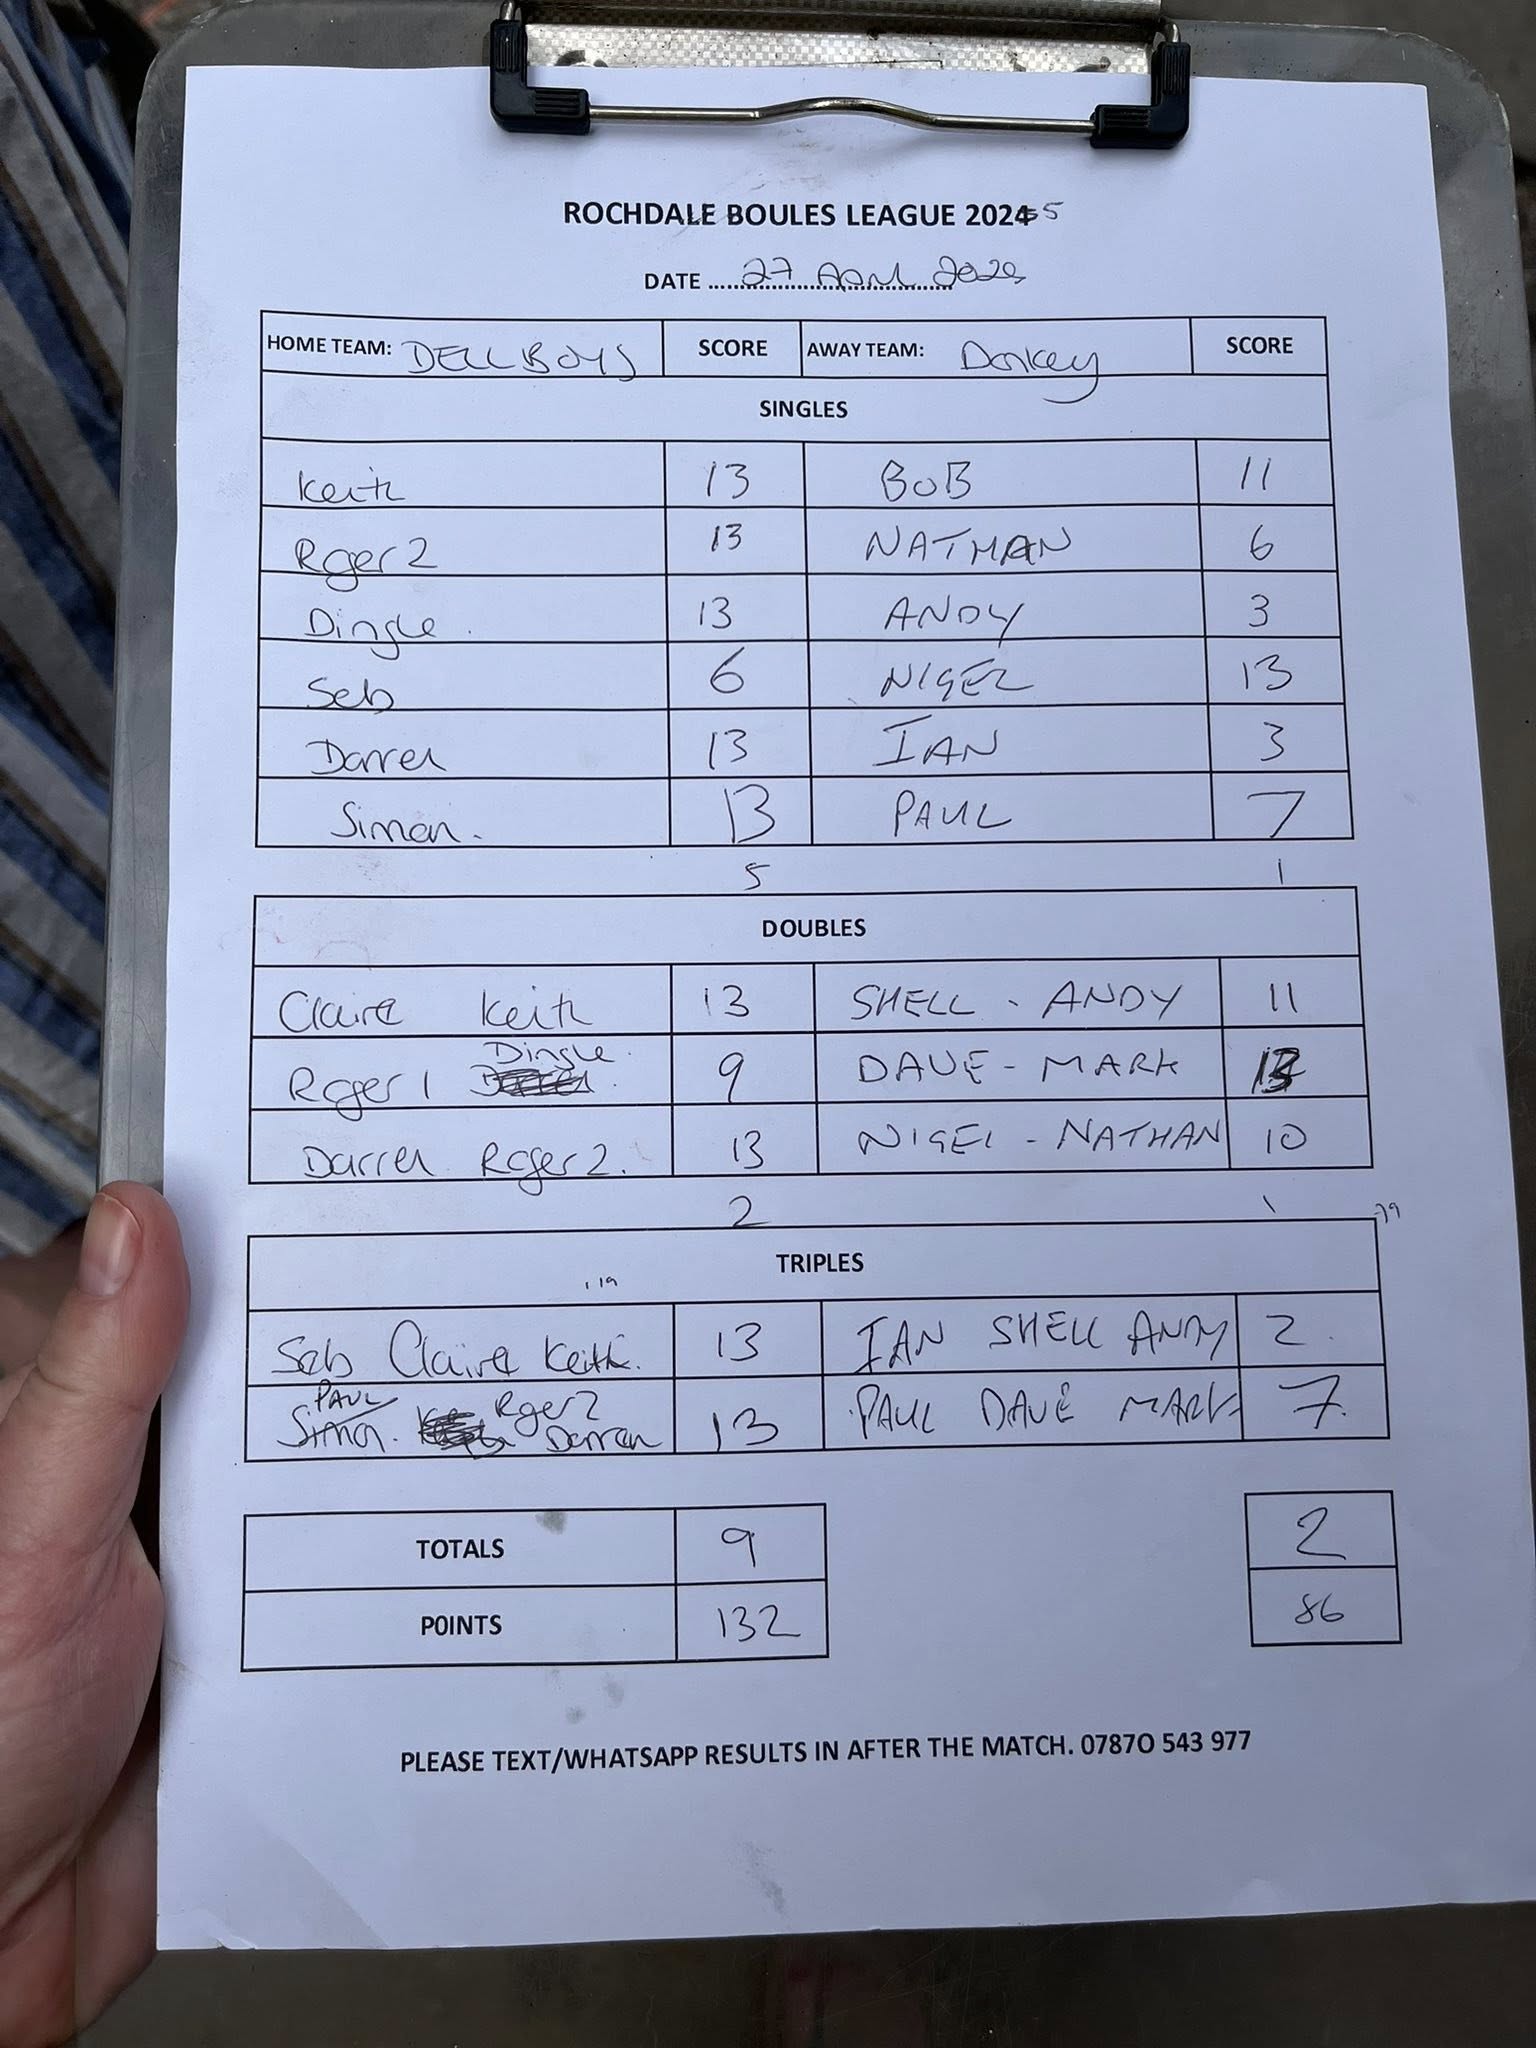 ROCHDALE BOULES LEAGUE 2024 5
DATE 27 April 2025
HOME TEAM: DELLBOYS SCORE AWAY TEAM: Donkey SCORE
SINGLES
Keith 13 BOB 11
Roger 2 13 NATHAN 6
Dingle 13 ANDY 3
Seb 6 NIGEL 13
Darren 13 IAN 3
Simon. 13 PAUL 7
5 1
DOUBLES
Claire Keith 13 SHELL - ANDY 11
Roger 1 Dingle 9 DAVE - MARK 13
Darren Roger 2. 13 NIGEL - NATHAN 10
2 1
TRIPLES
Seb Claire Keith. 13 IAN SHELL ANDY 2
PAUL
Simon. Roger 2 Darren 13 PAUL DAVE MARK 7
TOTALS 9 2
POINTS 132 86
PLEASE TEXT/WHATSAPP RESULTS IN AFTER THE MATCH. 0787O 543 977